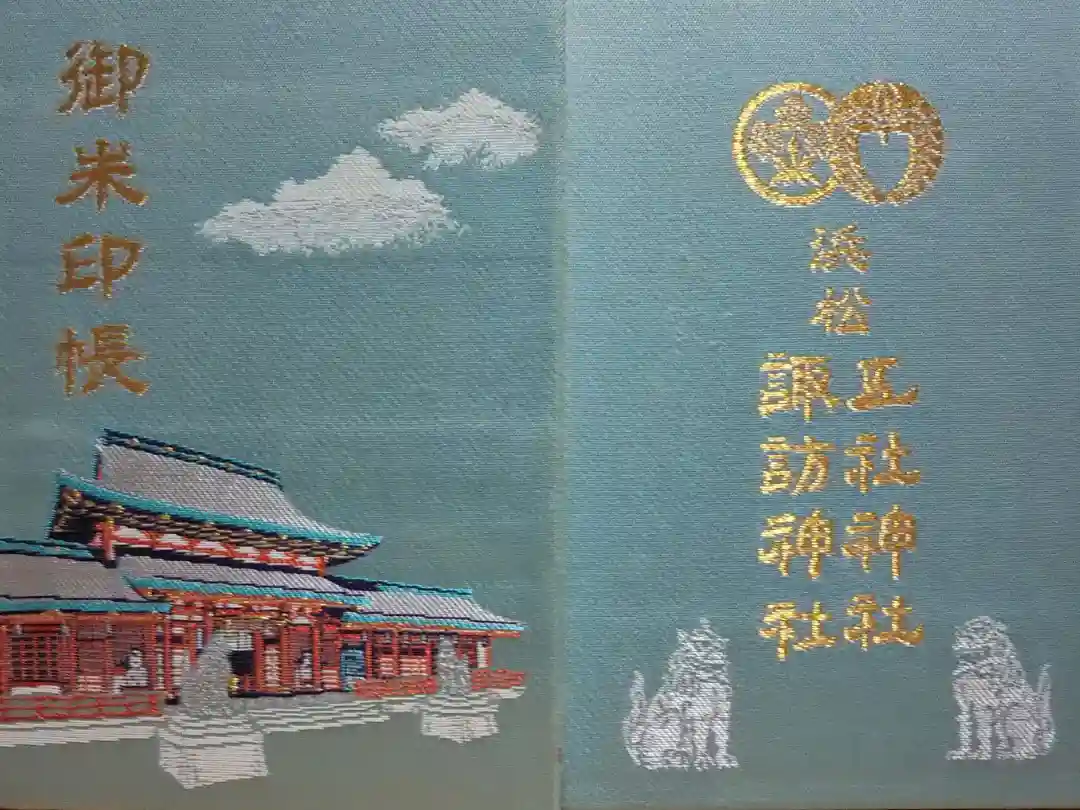 御朱印帳
浜松
五社神社
諏訪神社